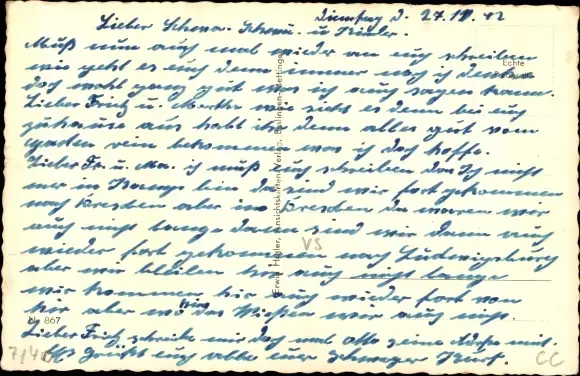 Dienstag d. 27.IV.42
Lieber Schwa. Schwä. u Kinder.
Muß nun auch mal wieder an euch schreiben
wie geht es euch denn immer noch ich denke
doch wohl ganz gut was ich auch sagen kann.
Lieber Fritz u. Martha wie sieht es denn bei euch
zuhause aus habt ihr denn alles gut vom
Garten rein bekommen was ich doch hoffe.
Lieber Fr. u. Ma. ich muß euch schreiben das Ich nicht
mer in bin da sind wir fort gekommen
nach Dresden aber in Dresden da waren wir
auch nicht lange dann sind wir dann auch
wieder fort gekommen nach Ludwigsburg
aber wir bleiben hir auch nicht lange
wir kommen hir auch wieder fort von
hir aber wo hin das Wissen wir auch nicht.
Lieber Fritz schreibe mir doch mal Otto seine mit.
Es grüßt euch alle euer Schwager Kurt.
Echte
Erwin Hagler, Ansichtskarten-Verlag,
N. 867
VS
CC